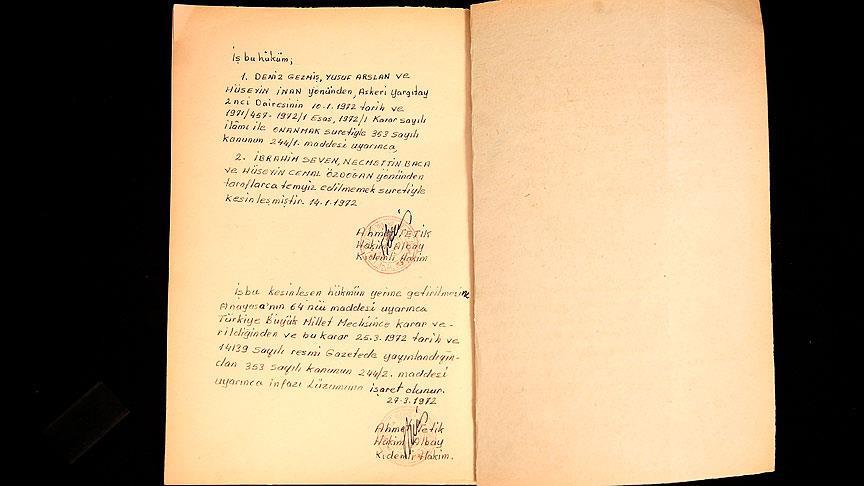 İş bu hüküm;
1. DENİZ GEZMİŞ, YUSUF ARSLAN ve
HÜSEYİN İNAN yönünden, Askeri Yargıtay
2nci Dairesinin 10-1-1972 tarih ve
1971/457-1972/1 Esas, 1972/1 Karar sayılı
ilâmı ile ONANMAK suretiyle 353 sayılı
kanunun 244/1. maddesi uyarınca,
2. İBRAHİM SEVEN, NECMETTİN BACA
ve HÜSEYİN CEMAL ÖZDOĞAN yönünden
taraflarca temyiz edilmemek suretiyle
kesinleşmiştir. 14.1.1972
Hakim Albay
Kıdemli Hakim
İşbu kesinleşen hükmün yerine getirilmesine
Anayasa'nın 64 ncü maddesi uyarınca
Türkiye Büyük Millet Meclisince karar ve-
rildiğinden ve bu karar 25.3.1972 tarih ve
14139 sayılı resmi Gazetede yayınlandığın-
dan 353 sayılı kanunun 244/2. maddesi
uyarınca infazı Lüzumuna işaret olunur.
27-3.1972
Hâkim Albay
Kıdemli Hakim.